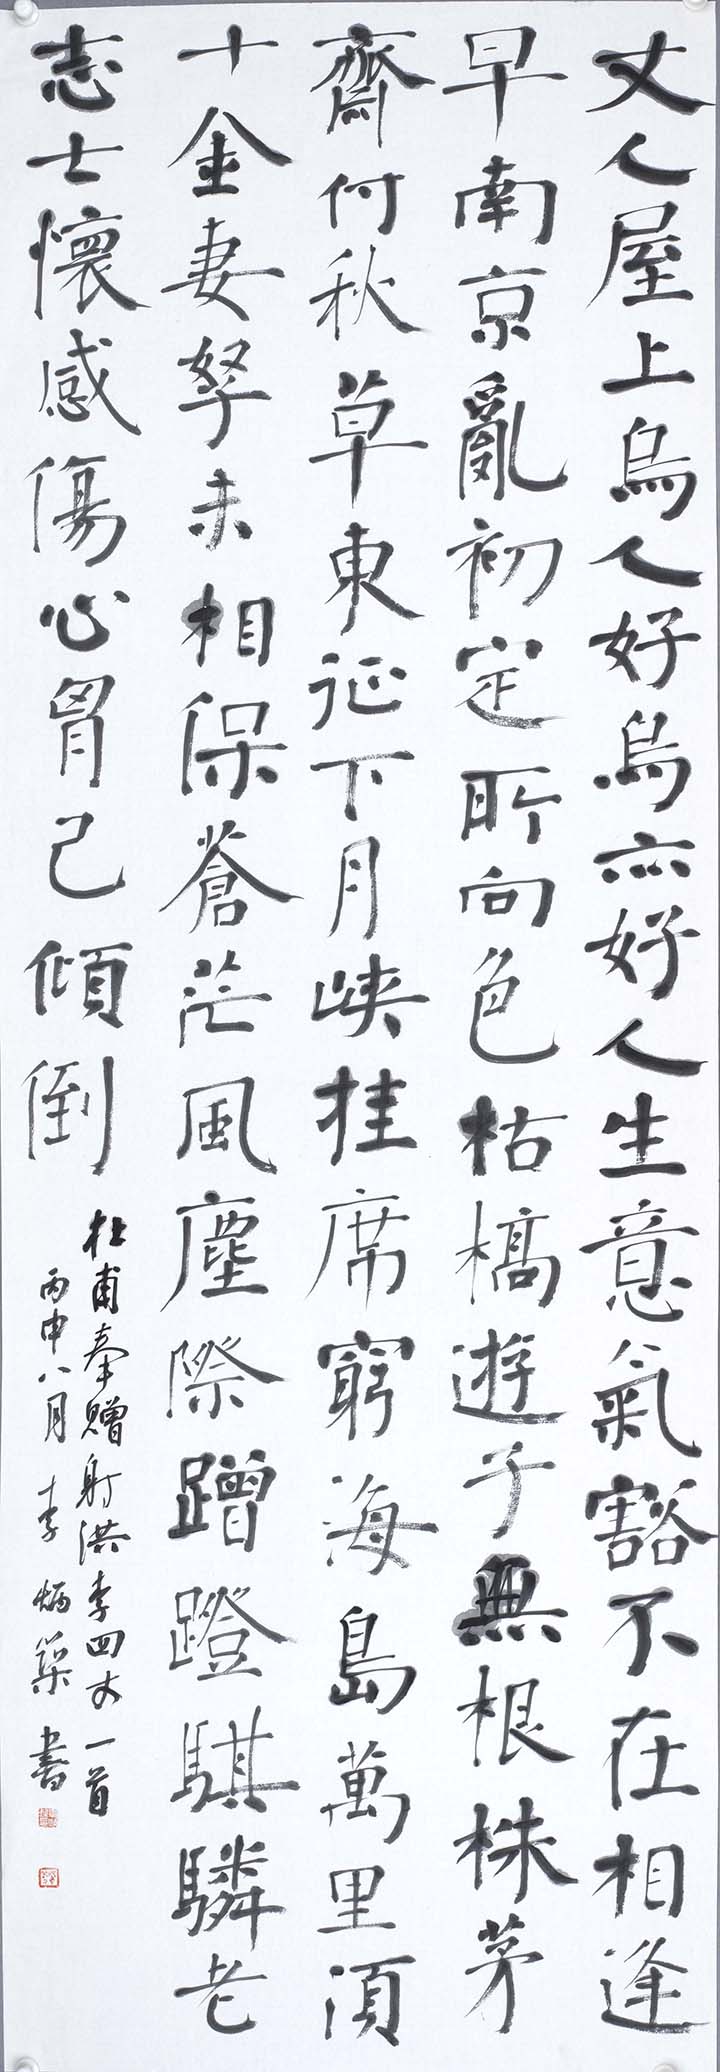 丈人屋上烏人好烏亦好人生意氣豁不在相逢
早南京亂初定所向色枯槁遊子無根株茅
齋付秋草東征下月峽挂席窮海島萬里須
十金妻孥未相保蒼茫風塵際蹭蹬騏驎老
志士懷感傷心胃已傾倒
杜甫奉贈射洪李四丈一首
丙申八月李炳築書